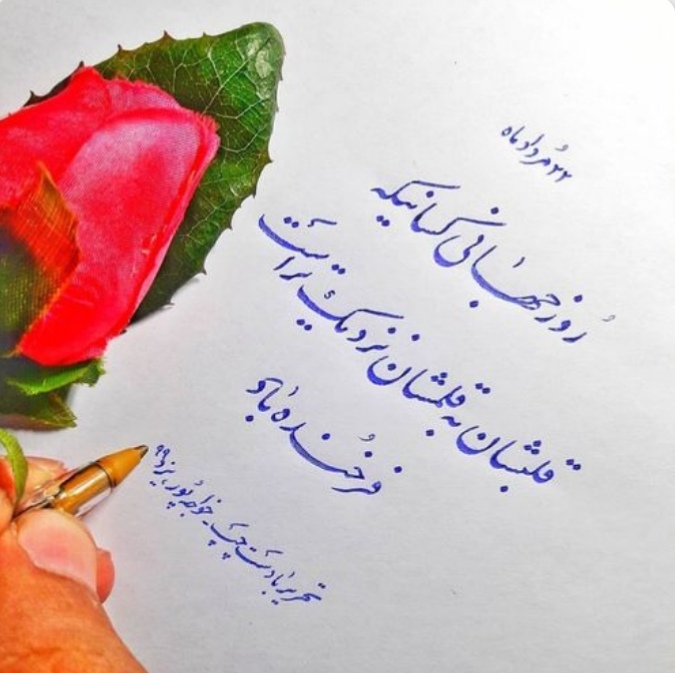 ۲۲ مُردادماه
رُوز جهانی کسانیکه
قلبشان به قلبمشان نزدیک‌تر است
فرخُنده باد
تحریر با دست چپ ـ خواجه پُور، یزد ۹۹